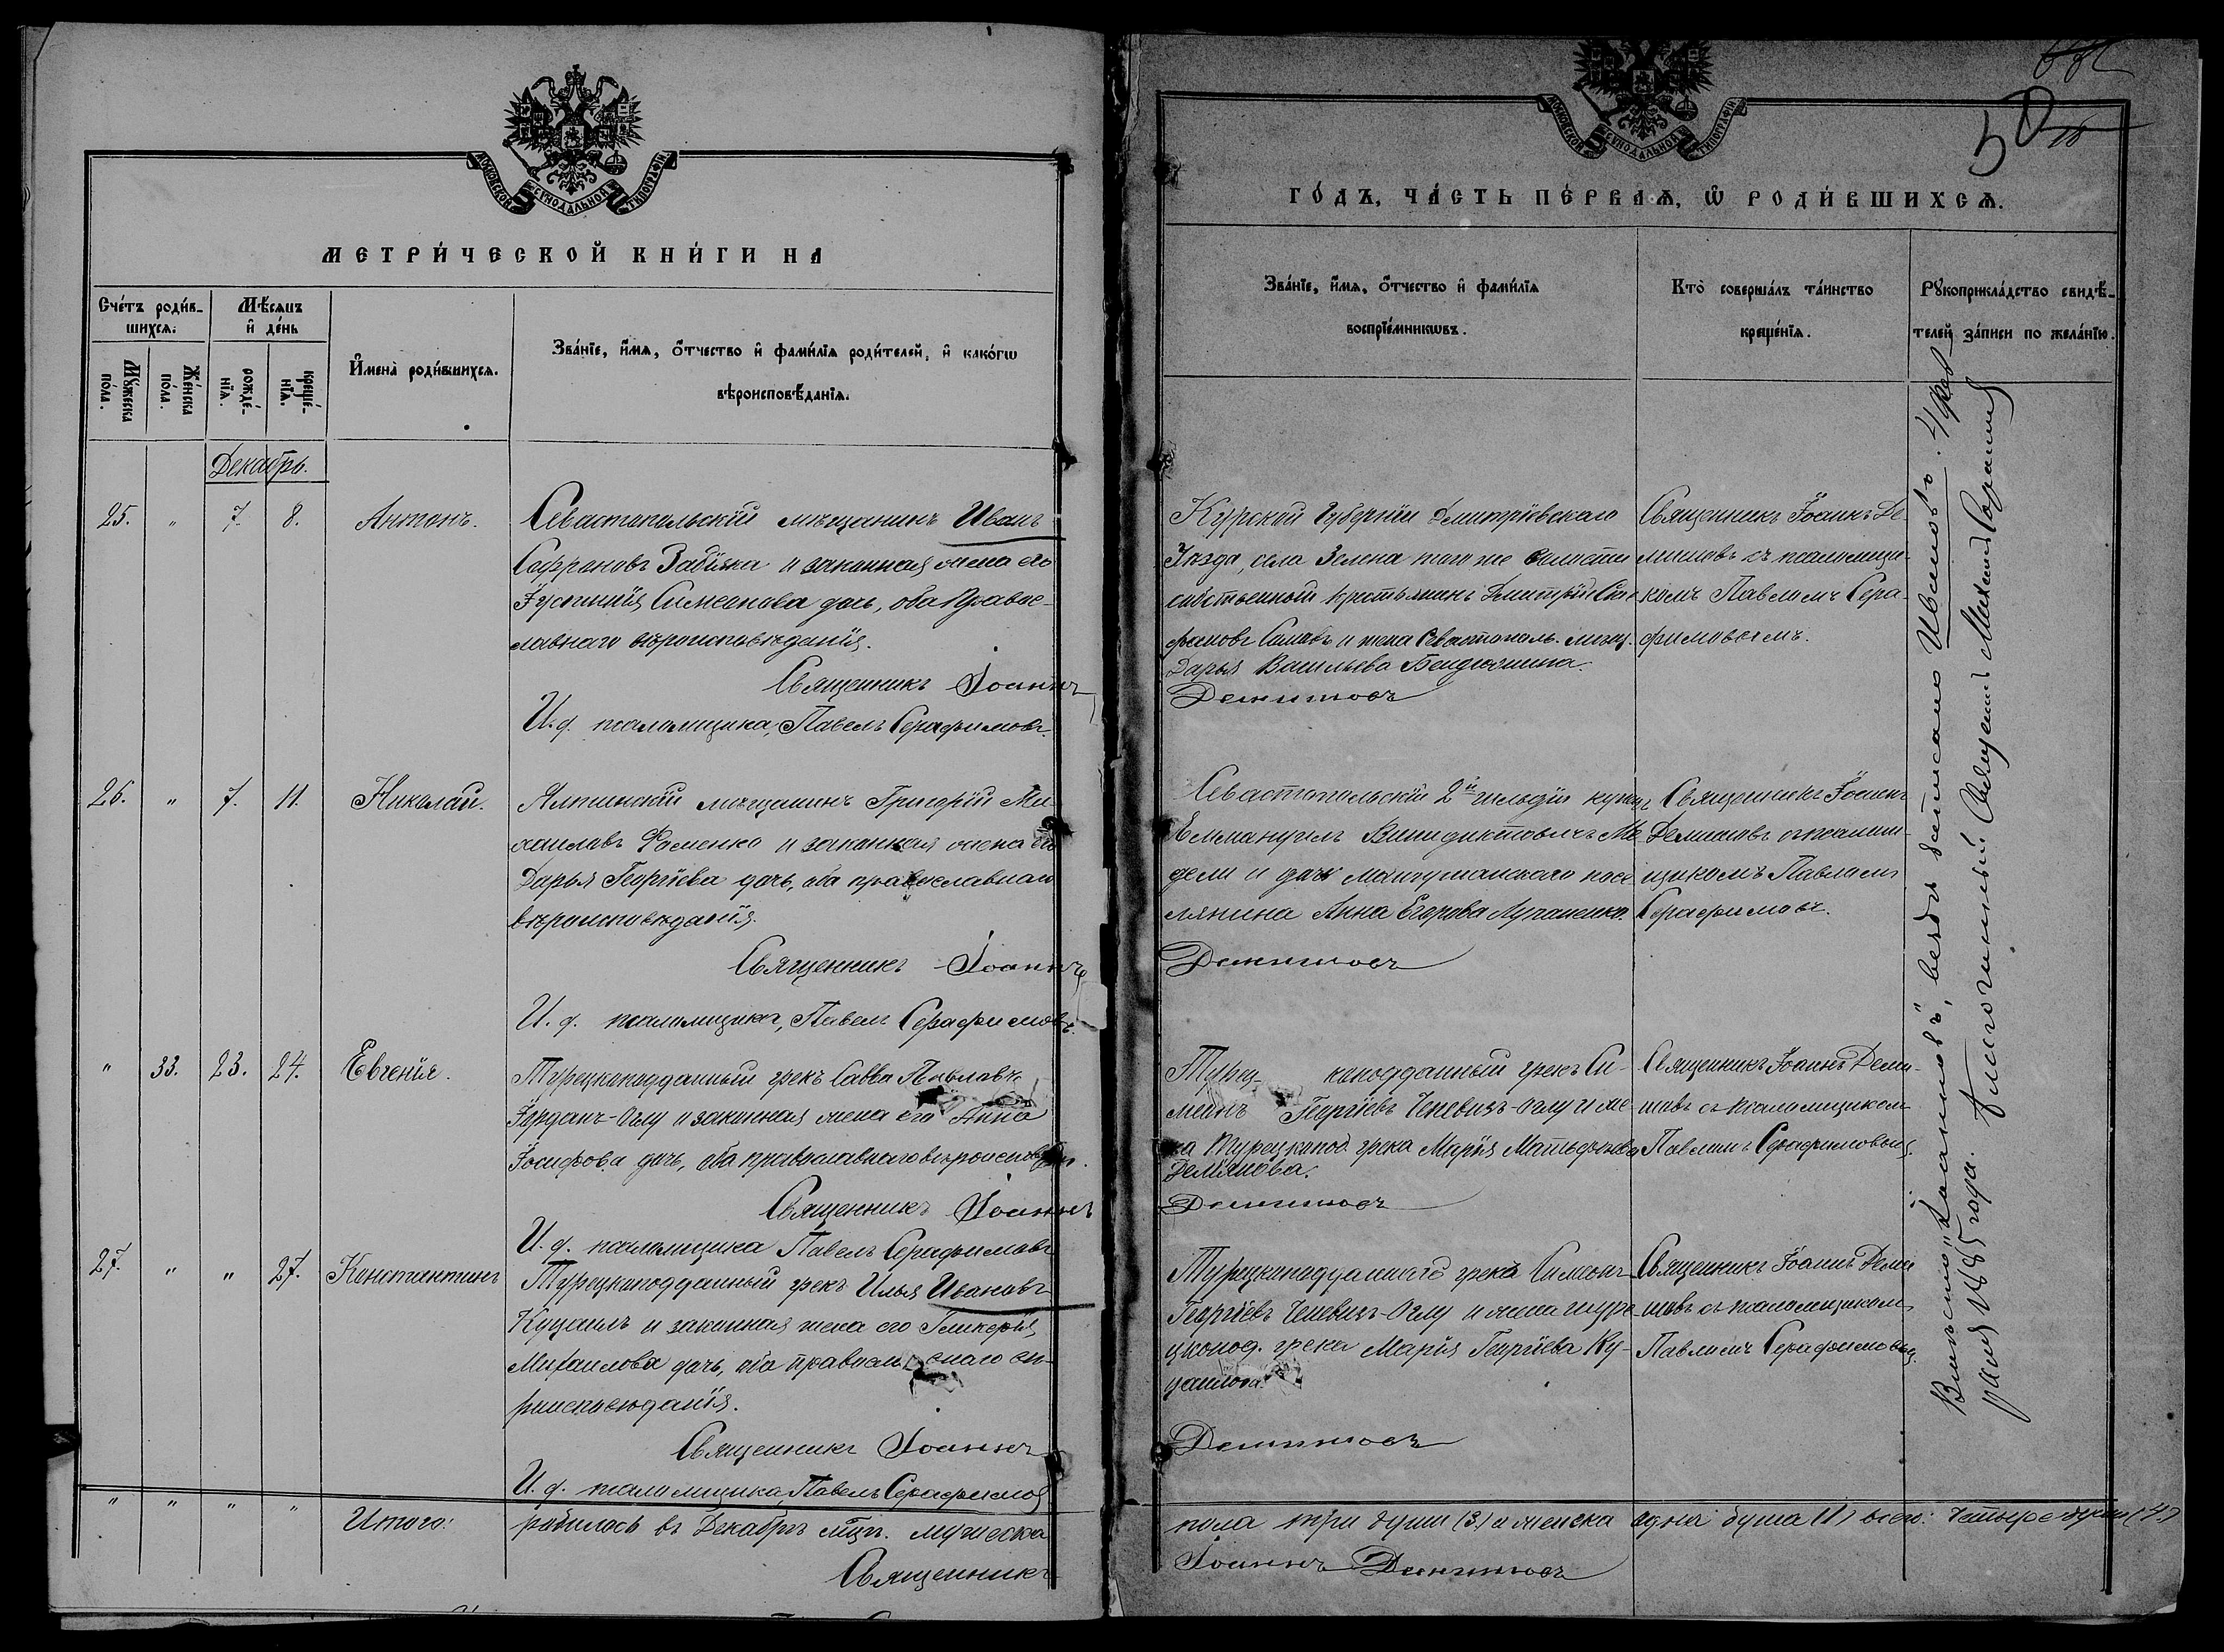 МОСКОВСКОЙ СѴНОДАЛЬНОЙ ТИПОГРАФІИ
МЕТРИ́ЧЕСКОЙ КНИ́ГИ НА
Сче́тъ роди́в-
шихсѧ.
Мѣ́сяцъ
и҆ де́нь
Мꙋ́жеска
по́ла.
Же́нска
по́ла.
рожде́-
нїѧ.
креще́-
нїѧ.
И҆мена̀ роди́вшихсѧ.
Зва́нїе, и҆́мѧ, ѻ҆́тчество и҆ фами́лїѧ роди́телей, и҆ како́гѡ
вѣроисповѣ́данїѧ.
Декабрь.
25. " 7. 8. Антонъ.
Севастопольскій мѣщанинъ Иванъ
Софроновъ Забіяка и законная жена его
Іустинія Симеонова дочь, оба Правос-
лавнаго вѣроисповѣданія.
Священникъ Іоаннъ
И. д. псаломщика, Павелъ Серафимовъ.
26. " 7. 11. Николай.
Ялтинскій мѣщанинъ Григорій Ми-
хаиловъ Фоменко и законная жена его
Дарья Георгіева дочь, оба православнаго
вѣроисповѣданія.
Священникъ Іоаннъ
И. д. псаломщика, Павелъ Серафимовъ.
" 33. 23. 24. Евгенія.
Турецкоподданный грекъ Савва Павловъ
Іорданъ-Оглу и законная жена его Анна
Іосифова дочь, оба православнаго вѣроисповѣдан.
Священникъ Іоаннъ
И. д. псаломщика Павелъ Серафимовъ
27. " " 27. Константинъ
Турецкоподданный грекъ Илья Ивановъ
Куцаилъ и законная жена его Гликерія
Михаилова дочь, оба православнаго вѣ-
роисповѣданія.
Священникъ Іоаннъ
И. д. псаломщика, Павелъ Серафимов
" " " "
Итого: родилось въ Декабрѣ мцѣ. мужеска
Священникъ
МОСКОВСКОЙ СѴНОДАЛЬНОЙ ТИПОГРАФІИ
50
ГО́ДЪ, ЧА́СТЬ ПЕ́РВАѦ, Ѡ҆ РОДИ́ВШИХСѦ.
Зва́нїе, и҆́мѧ, ѻ҆́тчество и҆ фами́лїѧ
воспрїе́мникѡвъ.
Кто̀ соверша́лъ та́инство
креще́нїѧ.
Рꙋкоприкла́дство свидѣ́-
телей за́писи по жела́нїю.
Курской Губерніи Дмитріевскаго
Уѣзда, села Зелена того же волости
собственный крестьянинъ Дмитрій
Самовъ и жена Севастополь. мѣщ.
Дарья Васильева
Демишовъ
Священникъ Іоаннъ Де-
мишовъ съ псаломщи-
комъ Павломъ Сера-
фимовымъ.
Севастопольскій 2й гильдіи купецъ
Еммануилъ Венидиктовичъ
и дочь посе-
лянина Анна Егорова
Демишовъ
Священникъ Іоаннъ
Демишовъ съ псалом-
щикомъ Павломъ
Серафимовъ.
Турец- коподданный грекъ Си-
меонъ Георгіевъ Чепевизъ-Оглу и же-
на Турецкопод. грека Марія
Деміянова.
Демишовъ
Священникъ Іоаннъ Деми-
шовъ съ псаломщикомъ
Павломъ Серафимовым
Турецкоподданнаго грека Симеонъ
Георгіевъ Чепевизъ-Оглу и жена туре-
цкопод. грека Марія Георгіева Ку-
цаилова.
Демишовъ
Священникъ Іоаннъ Деми
шовъ съ псаломщикомъ
Павломъ Серафимовым
Вмѣсто „Іоанновъ", вездѣ записано Ивановъ. 4 фев-
раля 1885 года. Священникъ Михаил
пола три души (3.) и женска одна душа (1) всего: четыре души (4.)
Іоаннъ Демишовъ